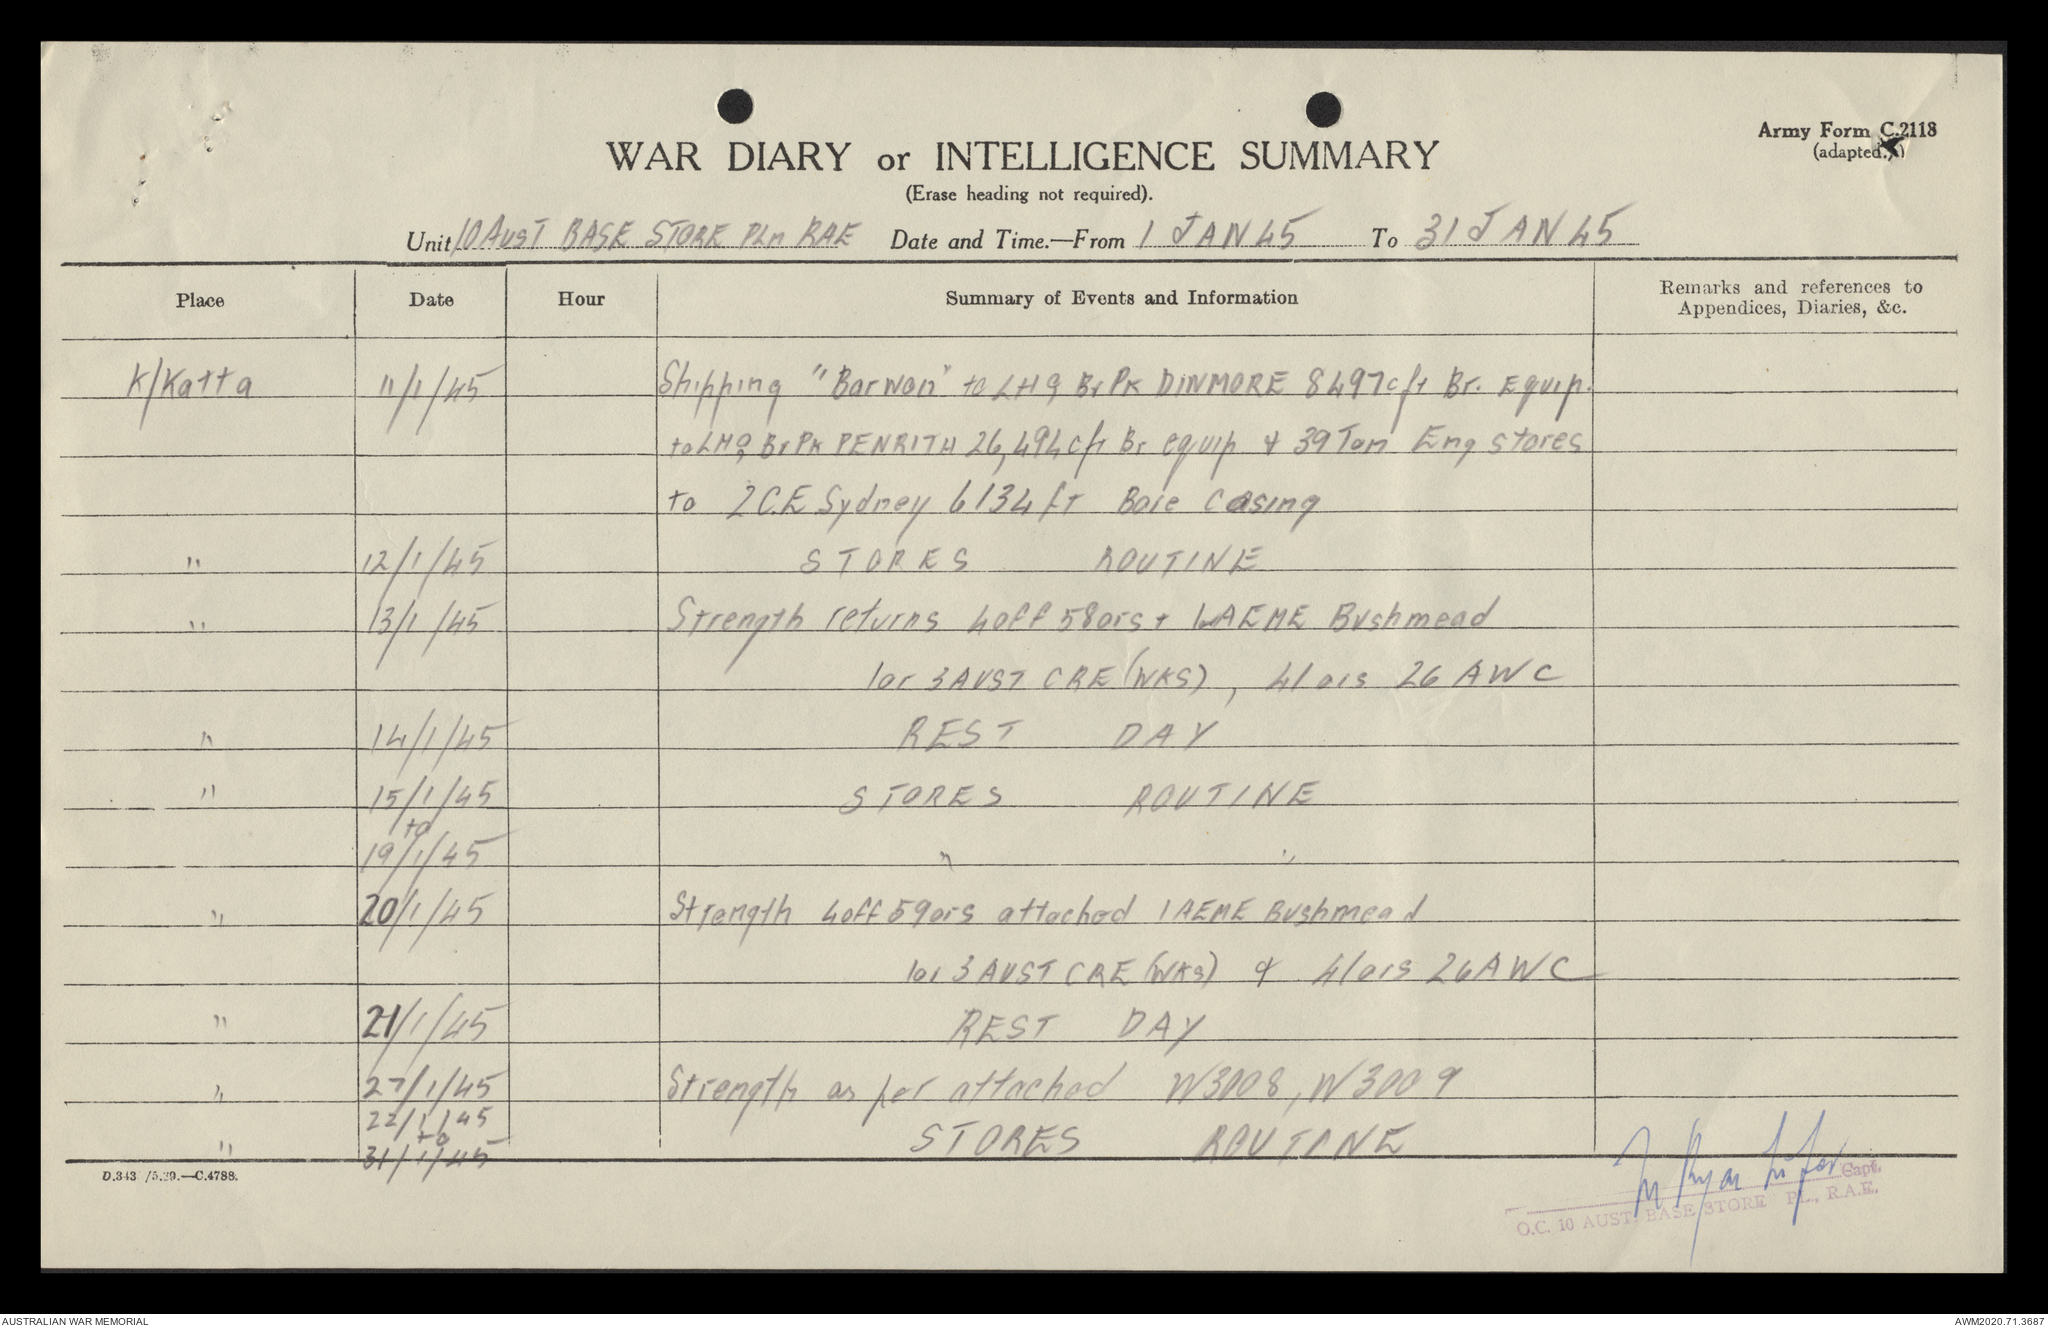 Army Form C.2118
(adapted.)
WAR DIARY or INTELLIGENCE SUMMARY
(Erase heading not required).
Unit 10 AUST BASE STORE PLn RAE Date and Time.—From 1 JAN 45 To 31 JAN 45
Place Date Hour Summary of Events and Information Remarks and references to
Appendices, Diaries, &c.
K/Katta 11/1/45 Shipping "Barwon" to LHQ Br Pk DINMORE 8497 cft Br. Equip.
to LHQ Br Pk PENRITH 26,494 cft Br equip & 39 Ton Eng stores
to 2 C.E Sydney 6134 ft Bore Casing
" 12/1/45 STORES ROUTINE
" 13/1/45 Strength returns 4 off 58 ors + 1 AEME Bushmead
1 or 3 AUST CRE (WKS), 41 ors 26 AWC
" 14/1/45 REST DAY
" 15/1/45 STORES ROUTINE
to
19/1/45 " "
" 20/1/45 Strength 4 off 59 ors attached 1 AEME Bushmead
1 or 3 AUST CRE (WKS) & 41 ors 26 AWC
" 21/1/45 REST DAY
" 27/1/45 Strength as per attached W3008, W3009
22/1/45
to
" 31/1/45 STORES ROUTINE
D.343 /5.39.—C.4788.
Ryan Lt for Capt.
O.C. 10 AUST. BASE STORE PL., R.A.E.
AUSTRALIAN WAR MEMORIAL AWM2020.71.3687